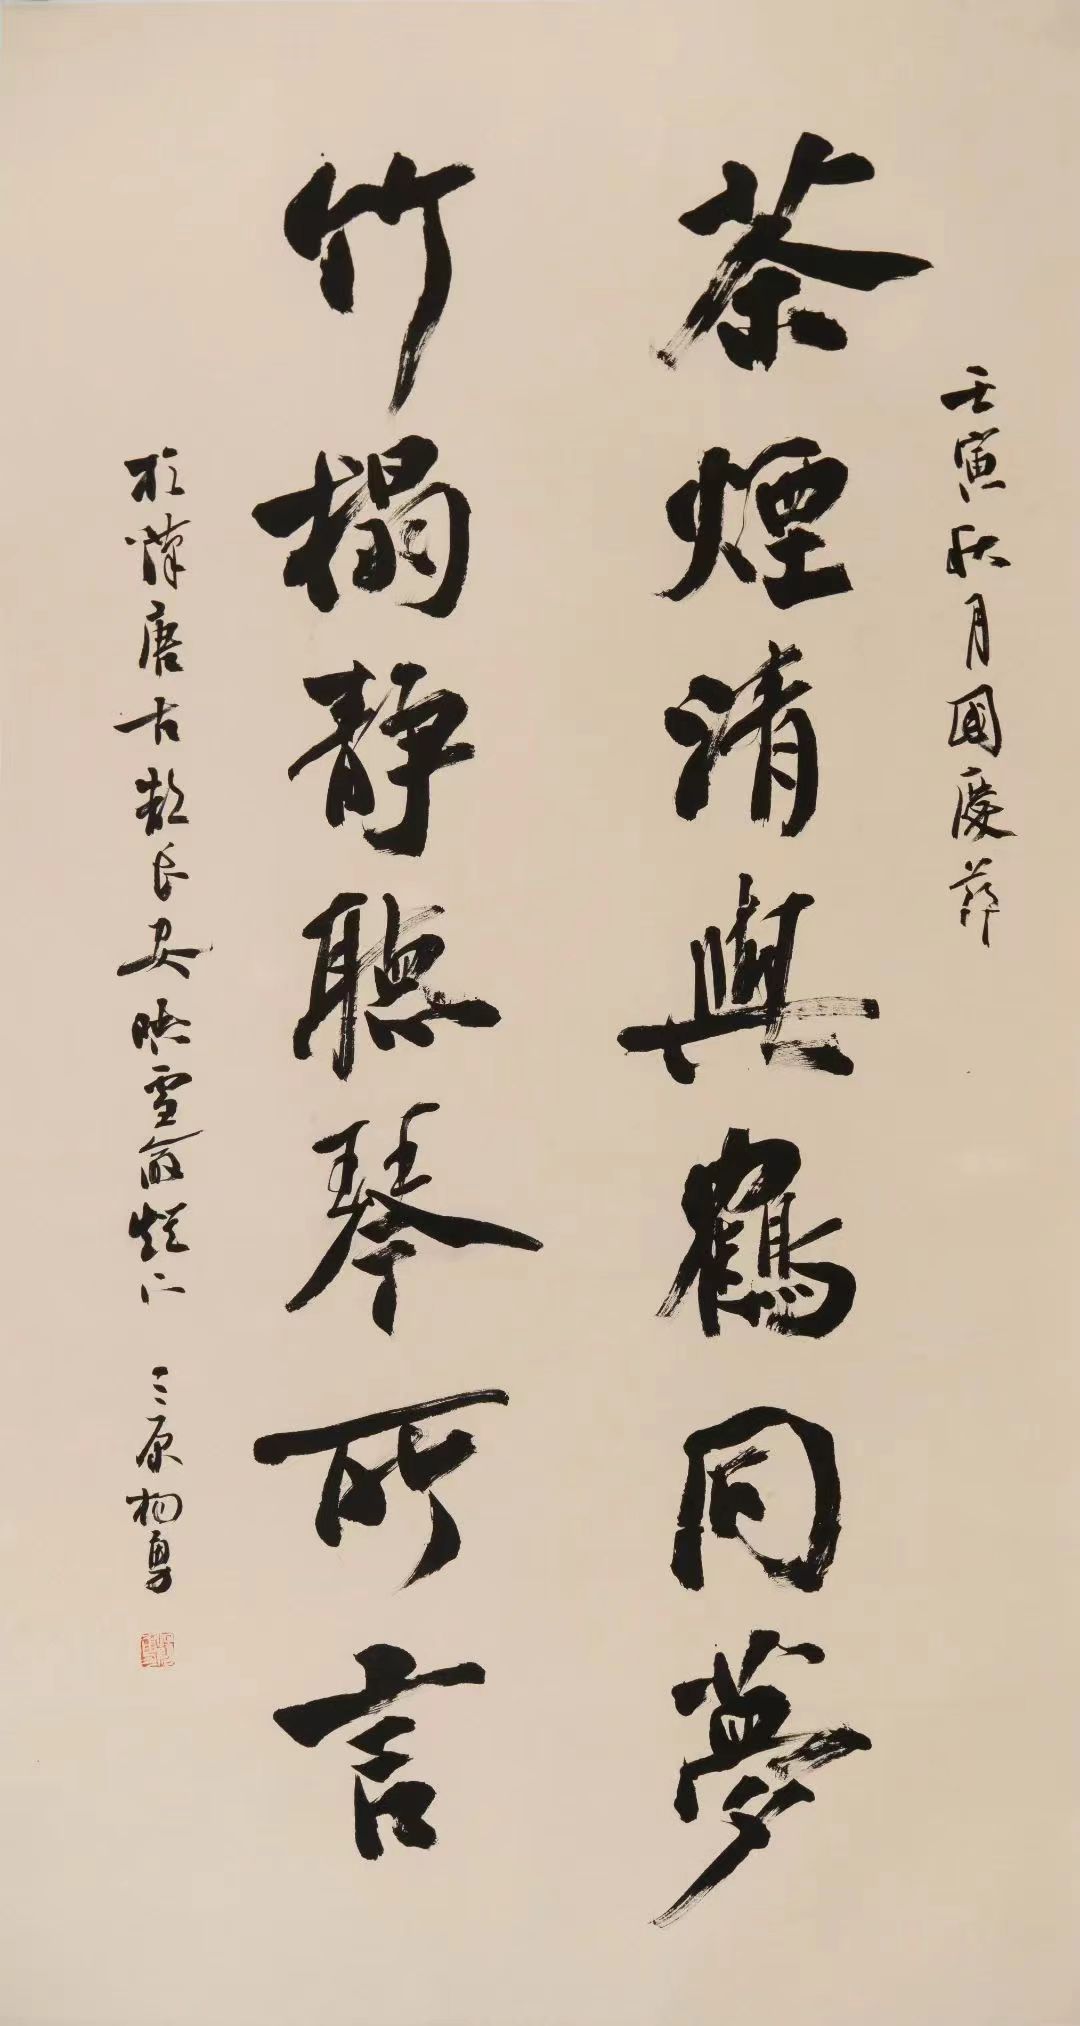 壬寅秋月國慶節
茶煙清與鶴同夢
竹榻靜聽琴所言
於漢唐古都長安映雪齋燈下 三原楊勇